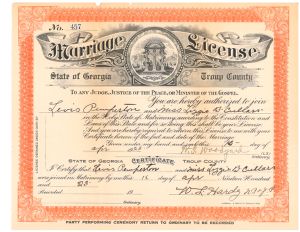 No. 457
Marriage License.
State of Georgia Troup County
TO ANY JUDGE, JUSTICE OF THE PEACE, OR MINISTER OF THE GOSPEL.
You are hereby authorized to join
Levis Pemperton and Miss Lizzie B
in the Holy State of Matrimony, according to the Constitution and
Laws of this State and for so doing this shall be your License.
And you are hereby required to return this License to me with your
Certificate hereon of the fact and date of the Marriage.
Given under my hand and seal this 16 day of
apr
STATE OF GEORGIA Certificate TROUP COUNTY
I Certify that Levis Pemperton and Miss Lizzie B
were joined in Matrimony by me this 16 day of apr Nineteen Hundred
and
Recorded 19 W. L. Hardy
PARTY PERFORMING CEREMONY RETURN TO ORDINARY TO BE RECORDED